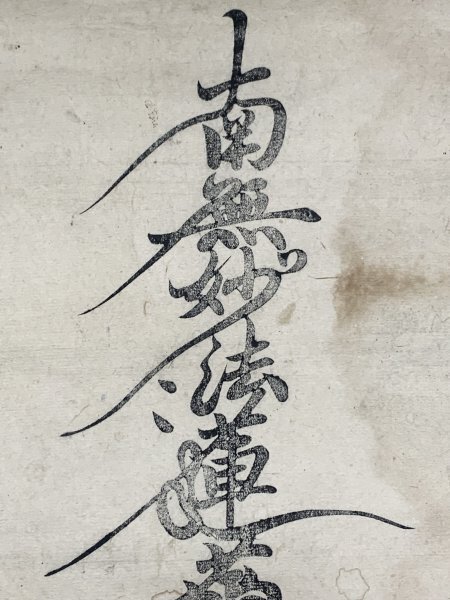 南無妙法蓮